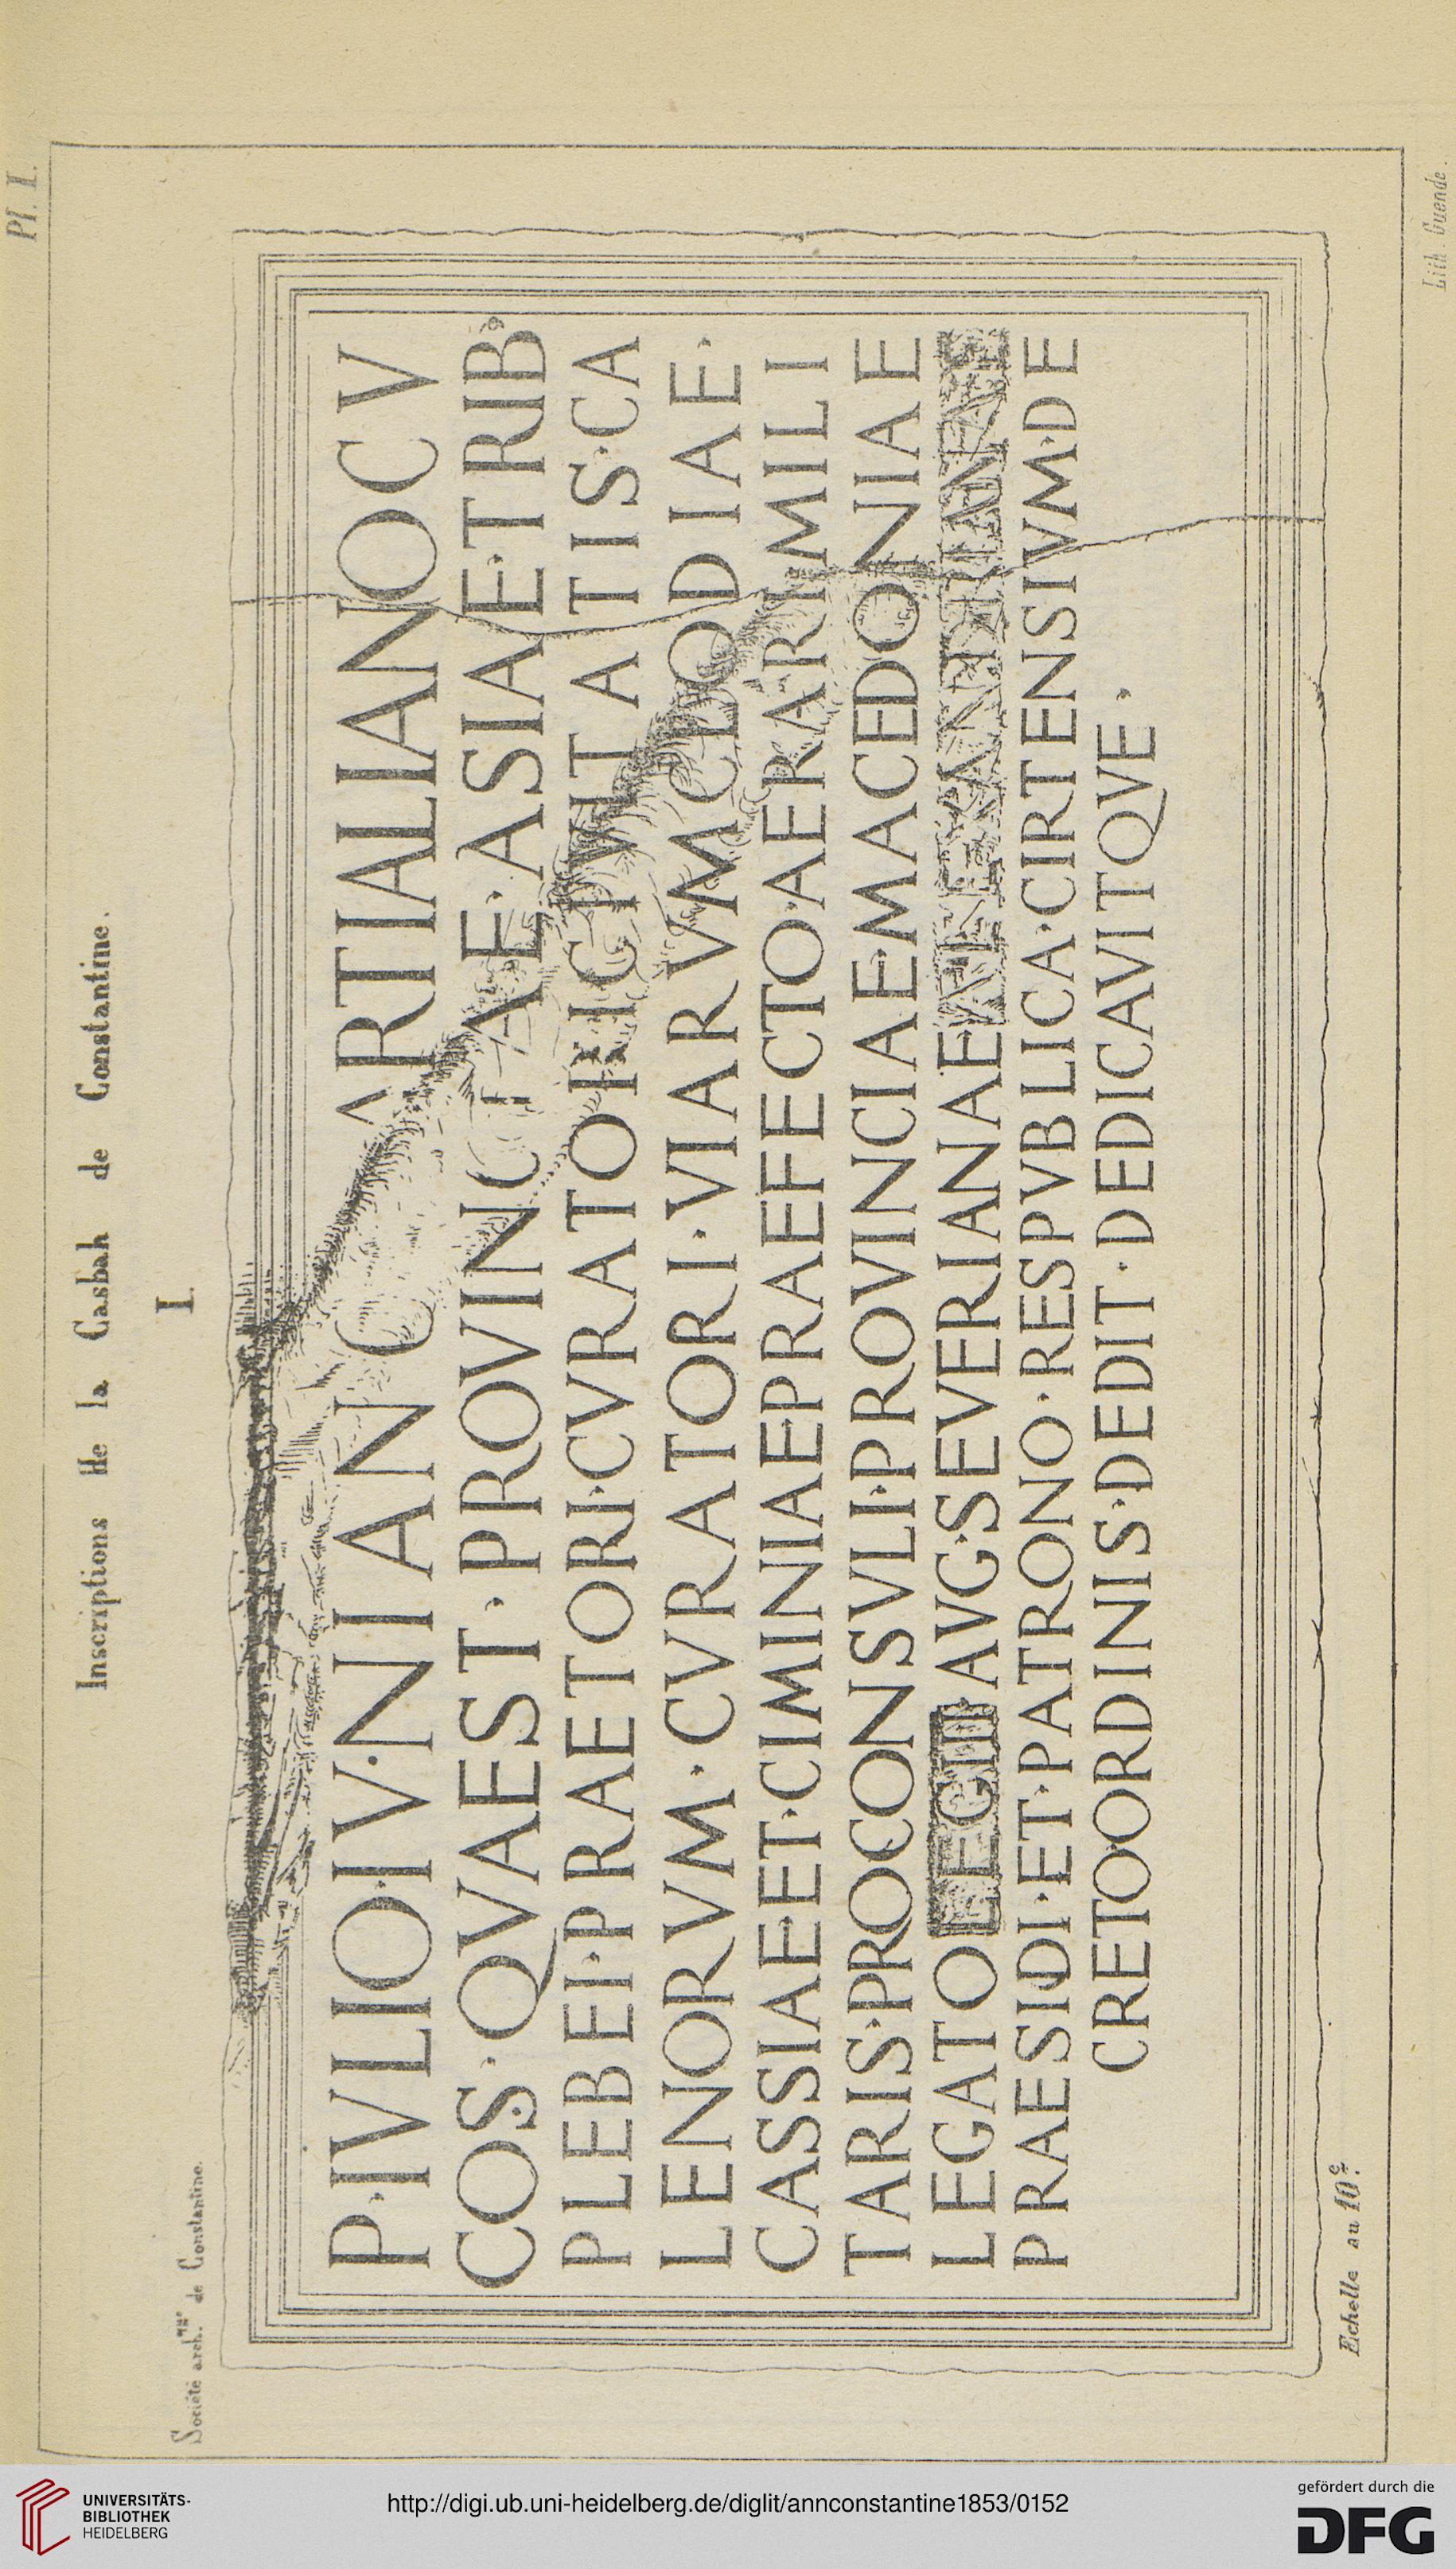 Pl. I.
Inscriptions de la Casbah de Constantine.
Société arch.que de Constantine.
I.
P·IVLIO·IV·NIANO ARTIALIANOCV
COS·QVAEST·PROVINCIAE·ASIAE·TRIB
PLEBEI·PRAETORI·CVRATORI·CIVITATIS·CA
LENORVM·CVRATORI·VIARVM CLODIAE·
CASSIAEET·CIMINIAEPRAEFECTO·AERARI·MILI
TARIS·PROCONSVLI·PROVINCIAE·MACEDONIAE
LEGATO LEGIII AVG·SEVERIANAE
PRAESIDI·ET·PATRONO·RESPVBLICA·CIRTENSIVM·DE
CRETO·ORDINIS·DEDIT·DEDICAVITQVE·
Echelle au 10e.
Lith Guende.
UNIVERSITÄTS-
BIBLIOTHEK
HEIDELBERG
http://digi.ub.uni-heidelberg.de/diglit/annconstantine1853/0152
gefördert durch die
DFG